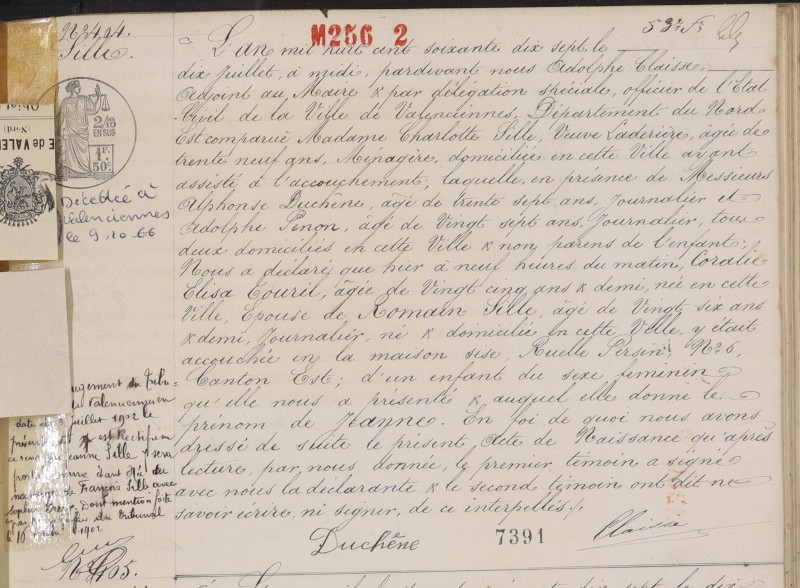 N° 2424.
Sille.
M256 2
53e f.t
L'An mil huit cent soixante dix sept le
dix Juillet, à midi, pardevant nous Adolphe Claisse,
Adjoint au Maire & par délégation spéciale, officier de l'Etat
Civil de la Ville de Valenciennes, Département du Nord
Est comparue Madame Charlotte Sille, Veuve Laderière, âgée de
trente neuf ans, Ménagère, domiciliée en cette Ville ayant
assisté à l'accouchement, laquelle, en présence de Messieurs
Alphonse Duchêne, âgé de trente sept ans, Journalier et
Adolphe Penon, âgé de Vingt sept ans, Journalier, tous
deux domiciliés en cette Ville & non parens de l'enfant;
Nous a déclaré que hier à neuf heures du matin, Coralie
Elisa Couril, âgée de Vingt cinq ans & demi, née en cette
Ville, Epouse de Romain Sille, âgé de Vingt six ans
& demi, Journalier, né & domicilié en cette Ville, y était
accouchée en la maison sise, Ruelle Persin, N° 6,
Canton Est; d'un enfant du sexe féminin
qu'elle nous a présenté & auquel elle donne le
prénom de Jeanne. En foi de quoi nous avons
dressé de suite le présent Acte de Naissance qu'après
lecture, par nous donnée, le premier témoin a signé
avec nous la déclarante & le second témoin ont dit ne
savoir écrire, ni signer, de ce interpellés.
Duchêne
7391
Claisse
2/10
EN SUS
1F.
50c
E de VALE
(Nord)
Décédée à
Valenciennes
le 9.10.66
ugement du Tribu=
Valenciennes en
date Juillet 1902 le
est Rectifié en
Jeanne Sille
étant née de
François Sille avec
Dont mention faite
du tribunal
1902